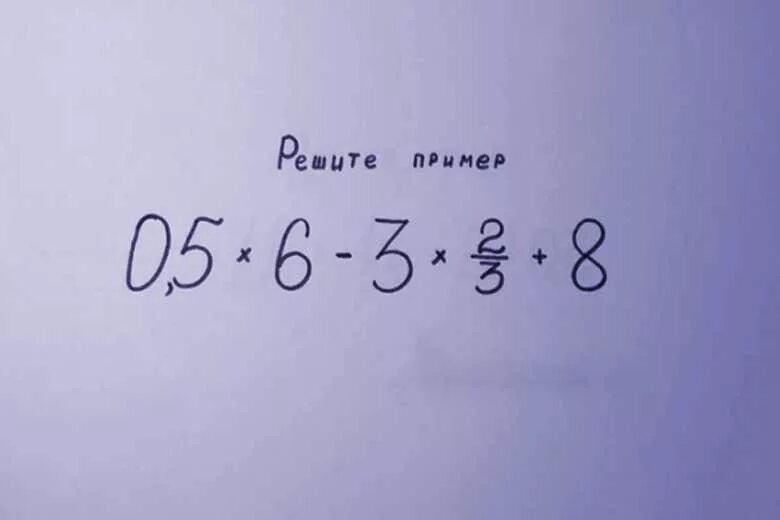 Решите пример
0,5 × 6 - 3 × 2/3 + 8